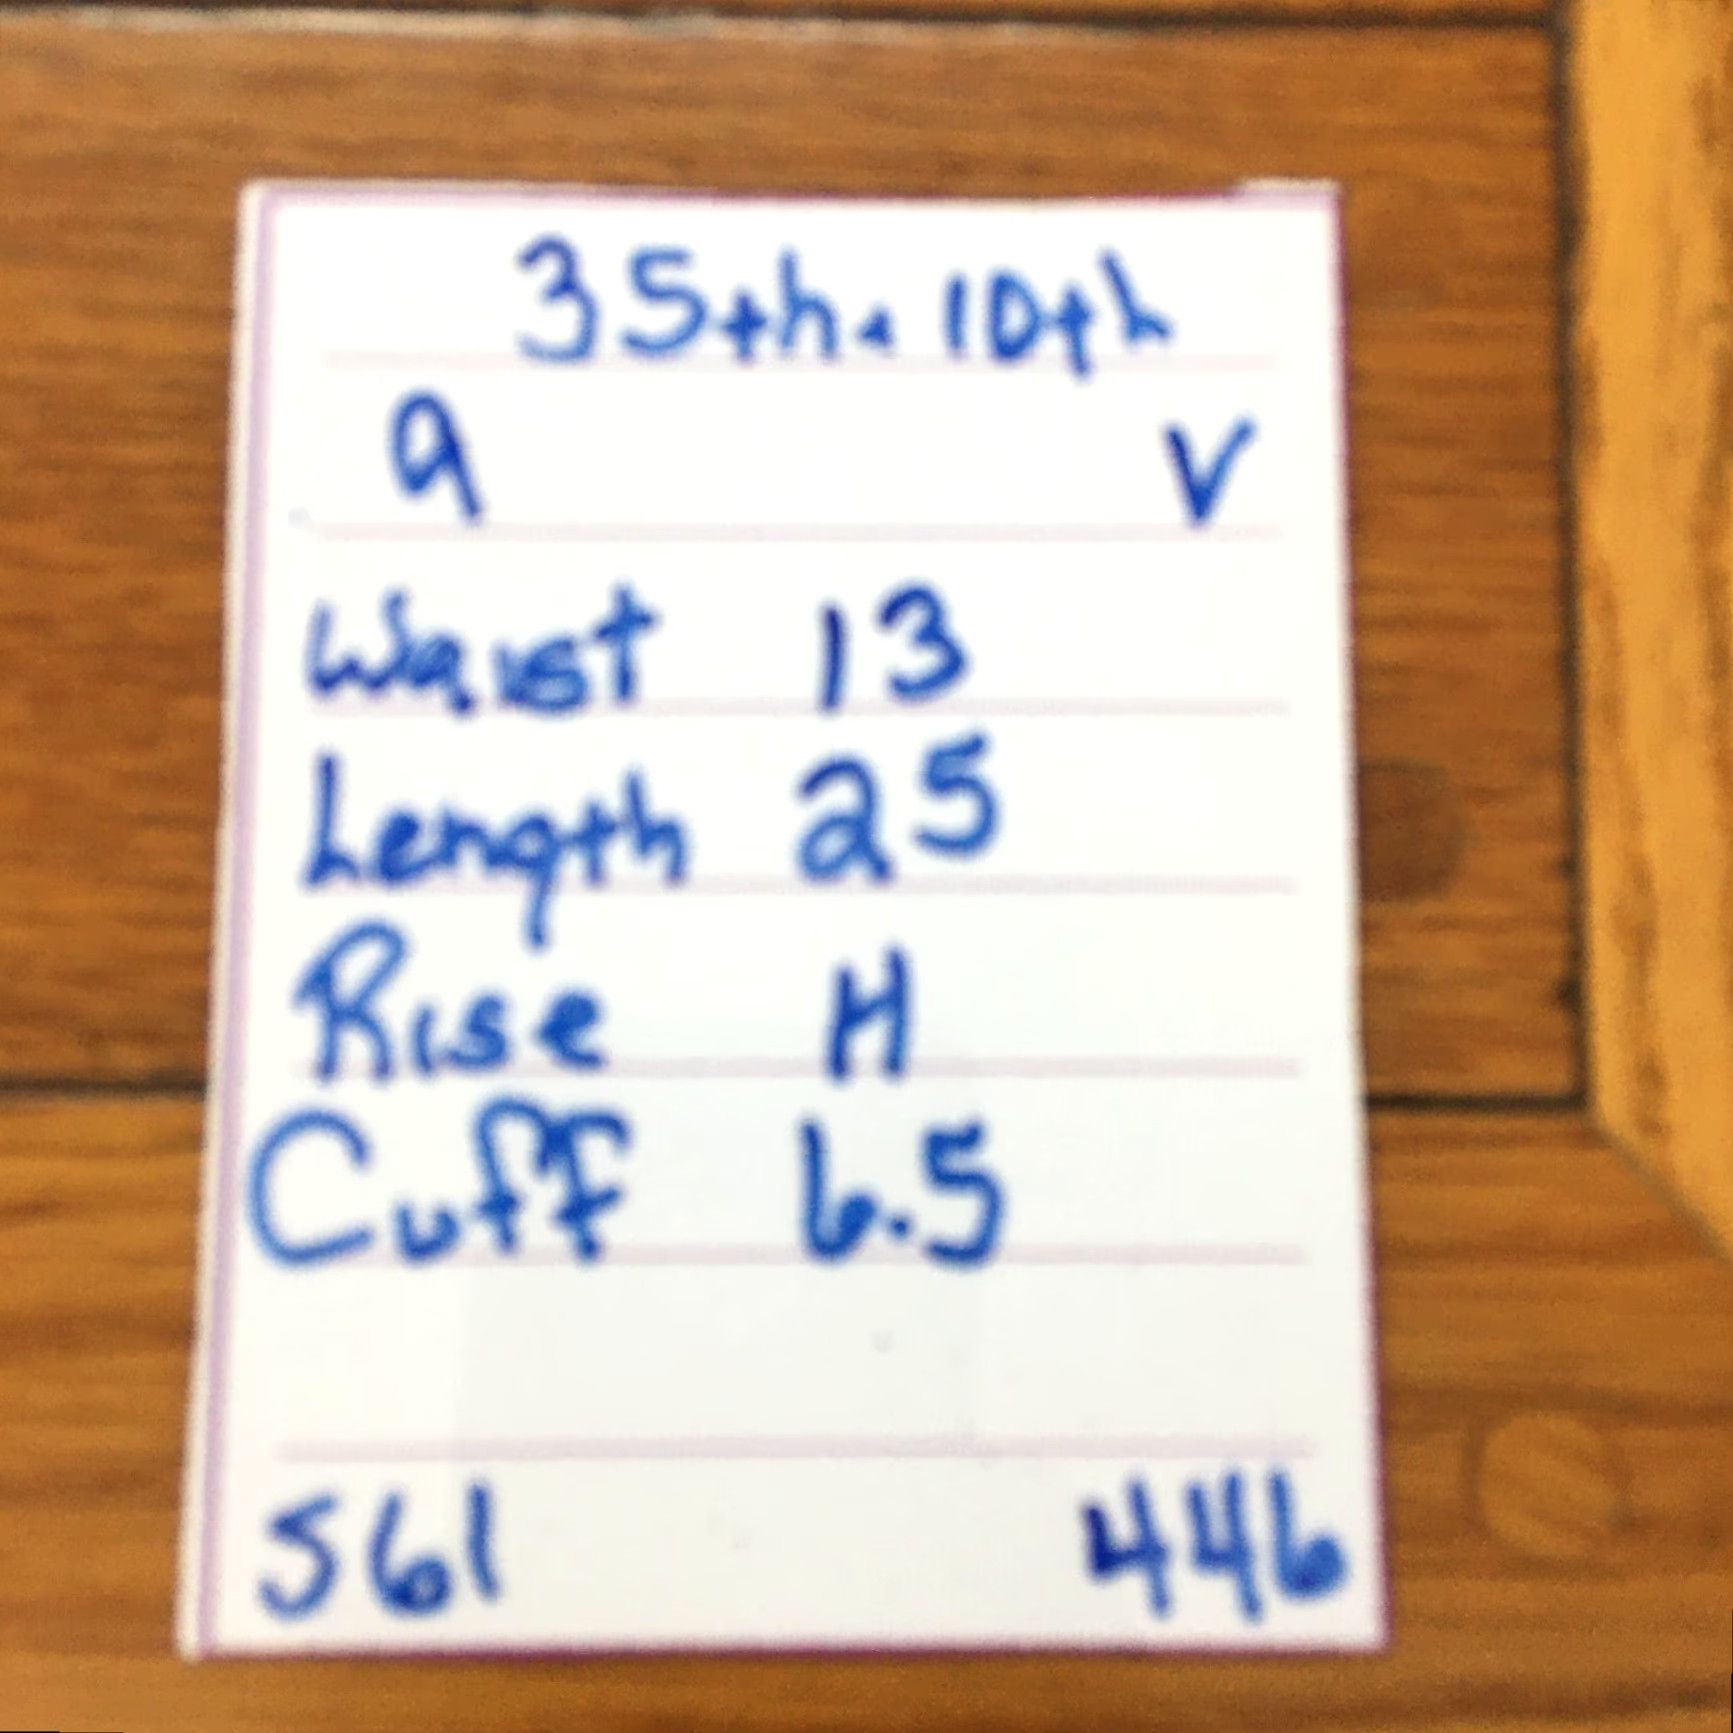 35th. 10th
9 V
Waist 13
Length 25
Rise H
Cuff 6.5
561 446